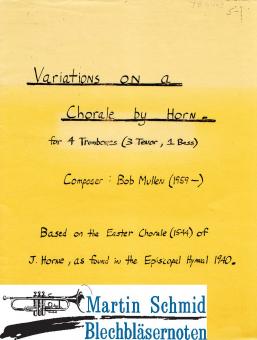 Variations on a
Chorale by Horn.
for 4 Trombones (3 Tenor, 1 Bass)
Composer: Bob Mullen (1959-)
Based on the Easter Chorale (1544) of
J. Horne, as found in the Episcopal Hymnal 1940.
Martin Schmid
Blechbläsernoten